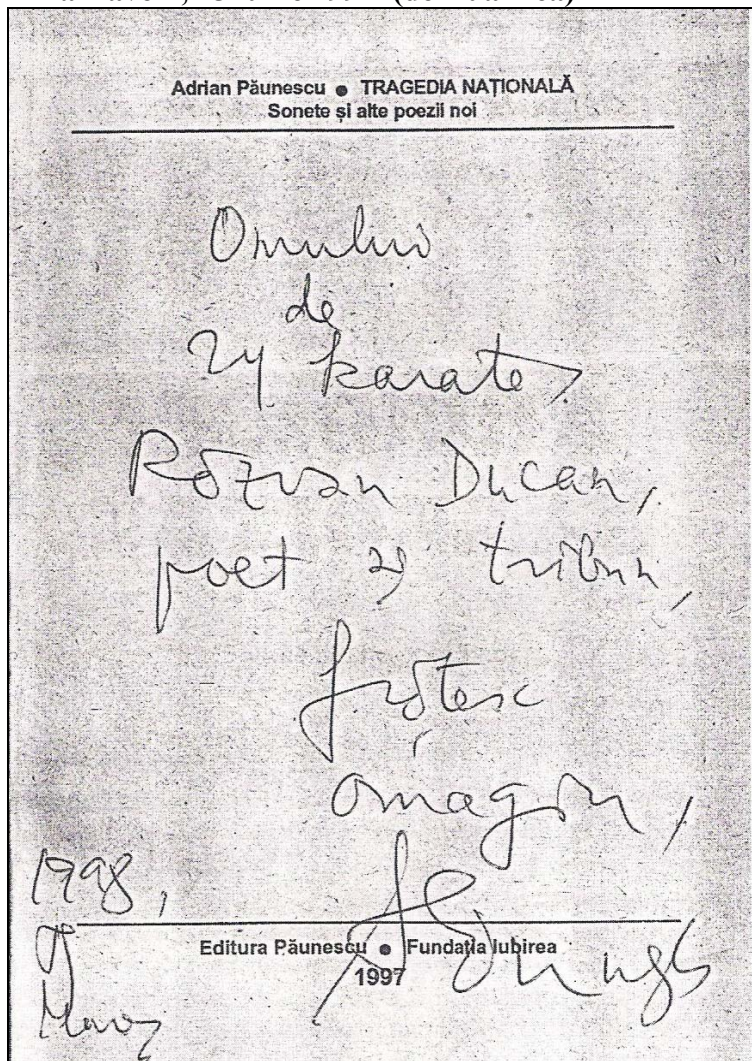 Adrian Păunescu ● TRAGEDIA NAȚIONALĂ
Sonete și alte poezii noi
Omului
de
24 karate,
Răzvan Ducan,
poet și tribun,
frățesc
omagiu,
1998,
9
Editura Păunescu ● Fundația Iubirea
1997